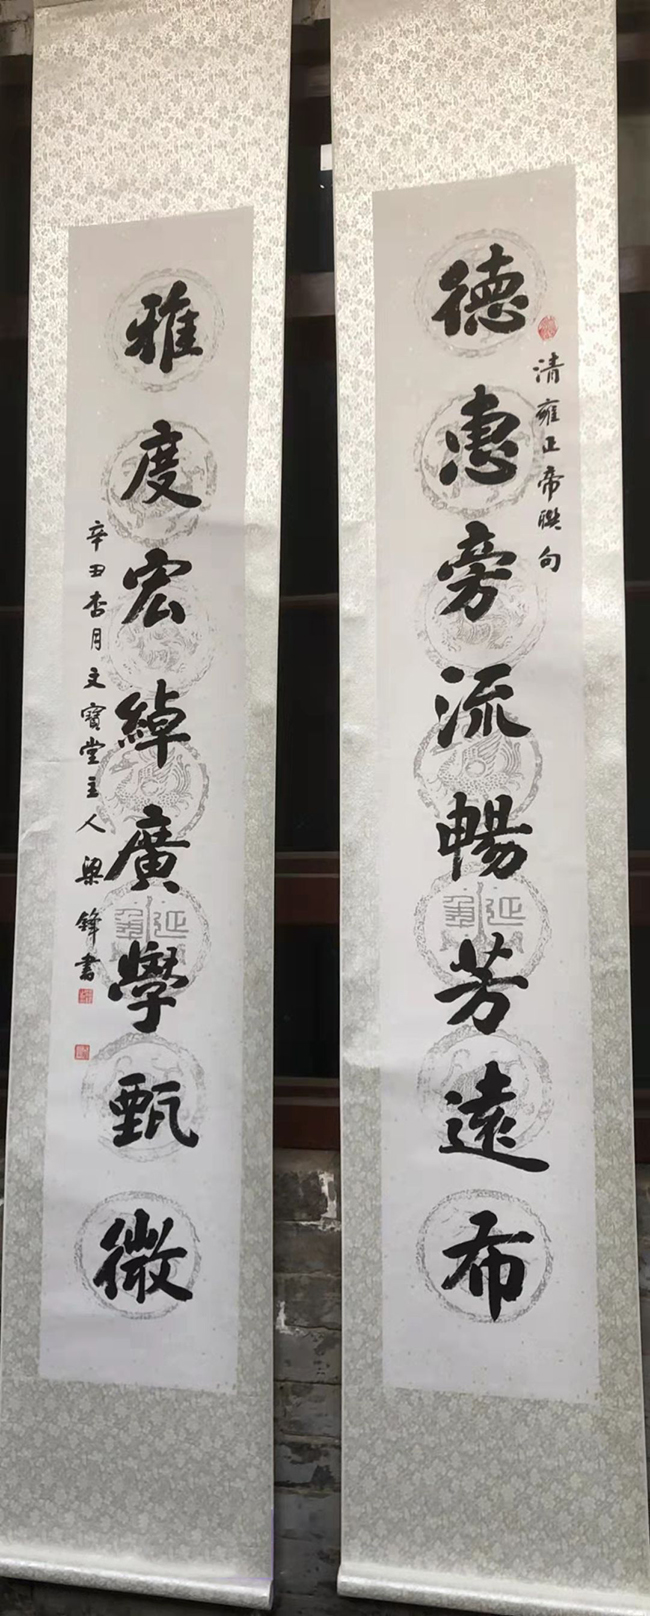 德惠旁流暢芳遠布
清雍正帝联句
雅度宏綽廣學甄微
辛丑杏月文寳堂主人梁鋒書